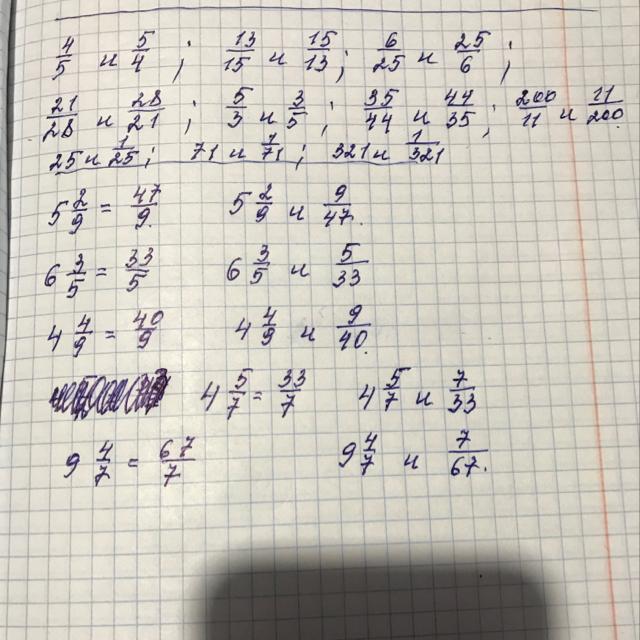 4/5 и 5/4 ; 13/15 и 15/13 ; 6/25 и 25/6 ;
21/28 и 28/21 ; 5/3 и 3/5 ; 35/44 и 44/35 ; 200/11 и 11/200.
25 и 1/25 ; 71 и 1/71 ; 321 и 1/321
5 2/9 = 47/9. 5 2/9 и 9/47.
6 3/5 = 33/5 6 3/5 и 5/33
4 4/9 = 40/9 4 4/9 и 9/40.
4 5/7 = 33/7 4 5/7 и 7/33
9 4/7 = 67/7 9 4/7 и 7/67.